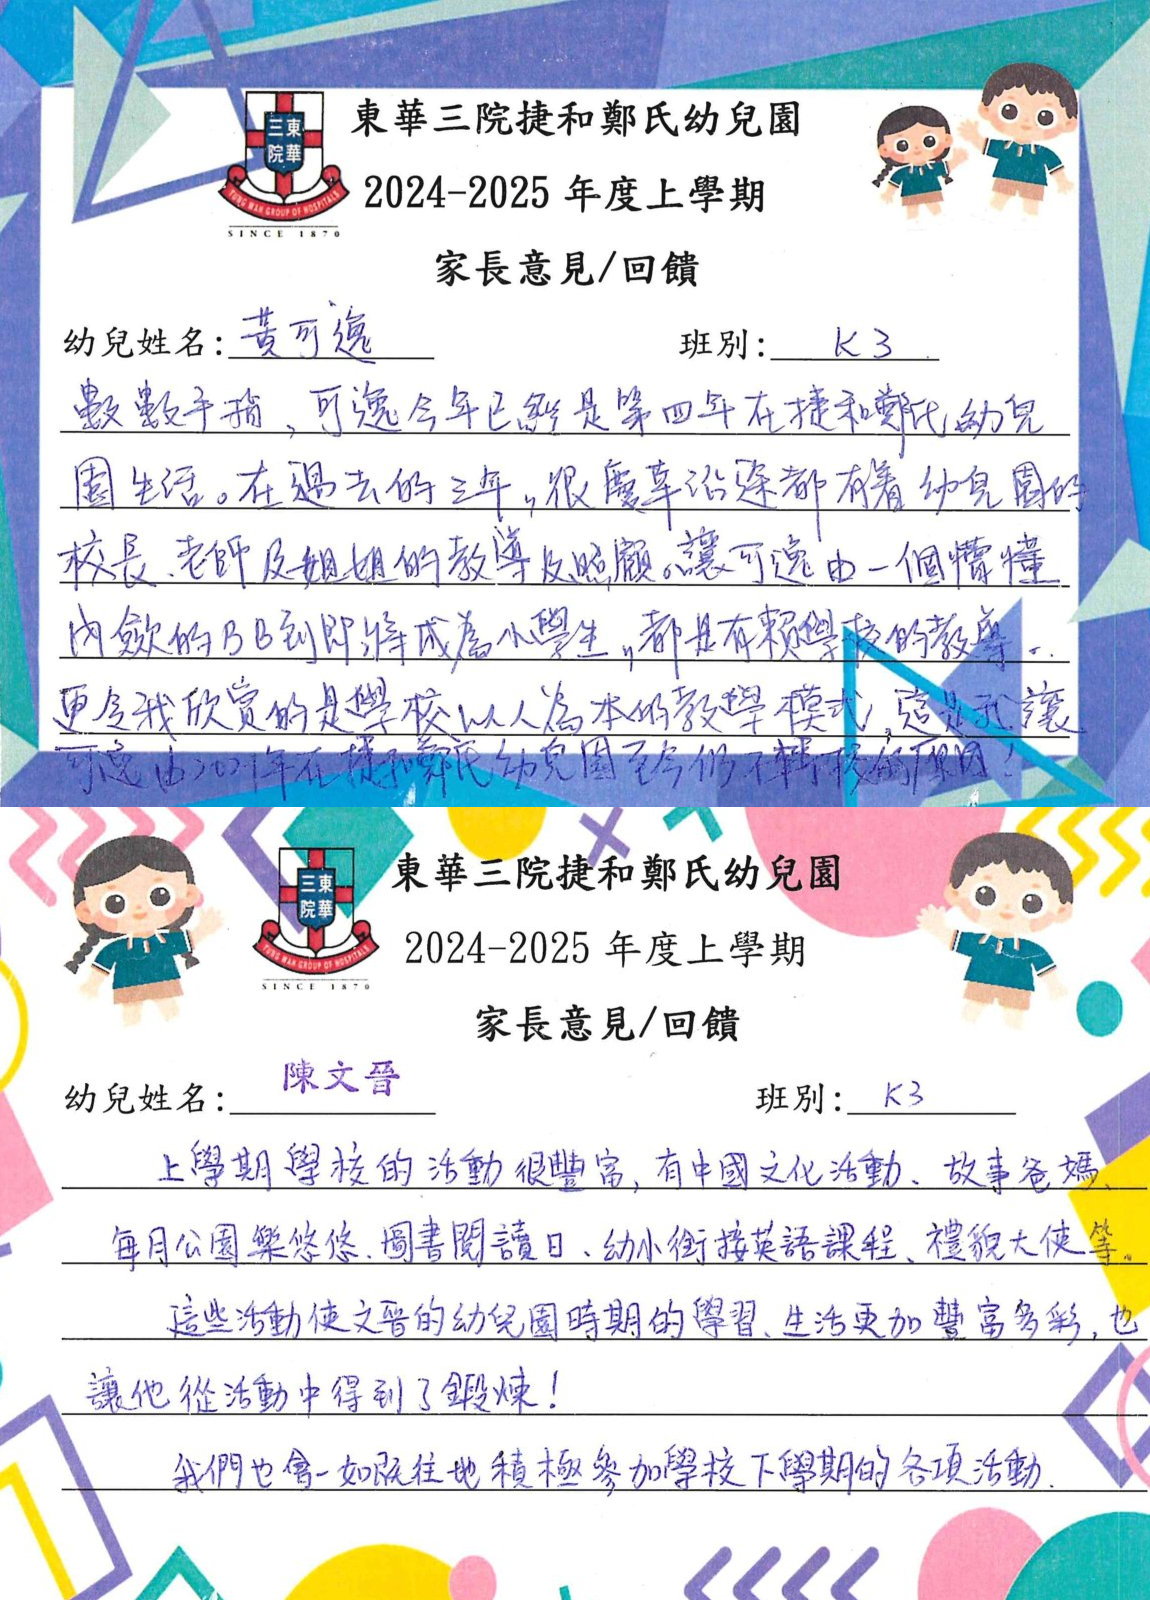 東華三院
TUNG WAH GROUP OF HOSPITALS
SINCE 1870
東華三院捷和鄭氏幼兒園
2024-2025 年度上學期
家長意見/回饋
幼兒姓名: 黃可逸 班別: K3
數數手指,可逸今年已經是第四年在捷和鄭氏幼兒
園生活。在過去的三年,很慶幸沿途都有着幼兒園的
校長、老師及姐姐的教導及照顧。讓可逸由一個懵懂
內歛的BB到即將成為小學生,都是有賴學校的教導。
更令我欣賞的是學校以人為本的教學模式,這是我讓
可逸由2021年在捷和鄭氏幼兒園至今仍不轉校的原因!
東華三院
TUNG WAH GROUP OF HOSPITALS
SINCE 1870
東華三院捷和鄭氏幼兒園
2024-2025 年度上學期
家長意見/回饋
幼兒姓名: 陳文晉 班別: K3
上學期學校的活動很豐富,有中國文化活動、故事爸媽、
每月公園樂悠悠、圖書閱讀日、幼小銜接英語課程、禮貌大使等。
這些活動使文晉的幼兒園時期的學習、生活更加豐富多彩,也
讓他從活動中得到了鍛煉!
我們也會一如既往地積極參加學校下學期的各項活動.